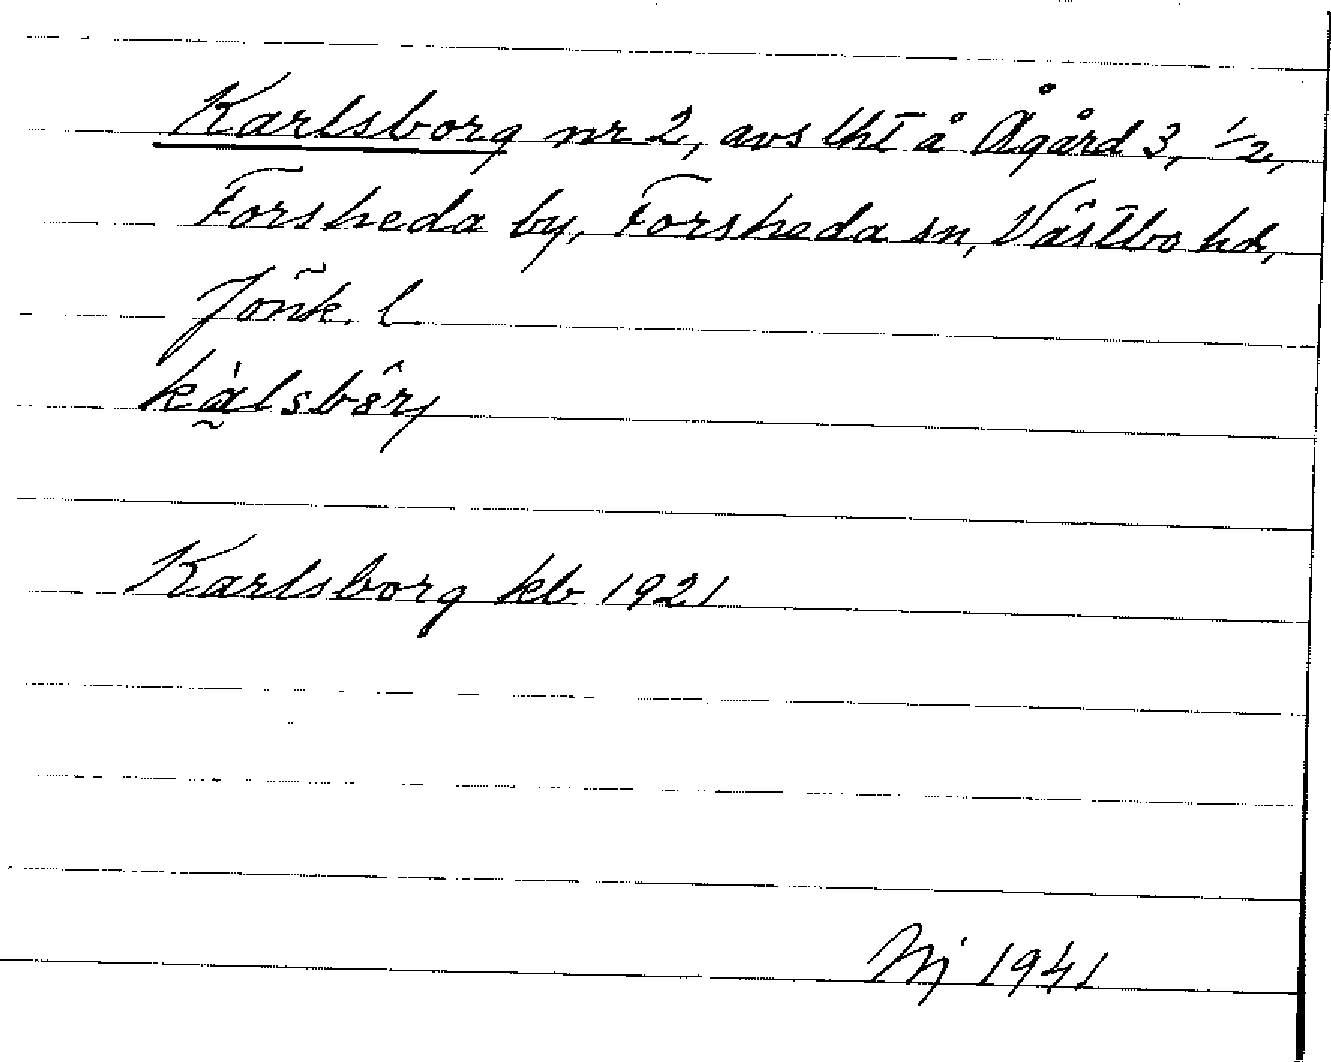 Karlsborg nr 2, avs lht å Ågård 3, 1/2,
Forsheda by, Forsheda sn, Västbo hd,
Jönk. l
Karlsborg kb 1921
Nj 1941